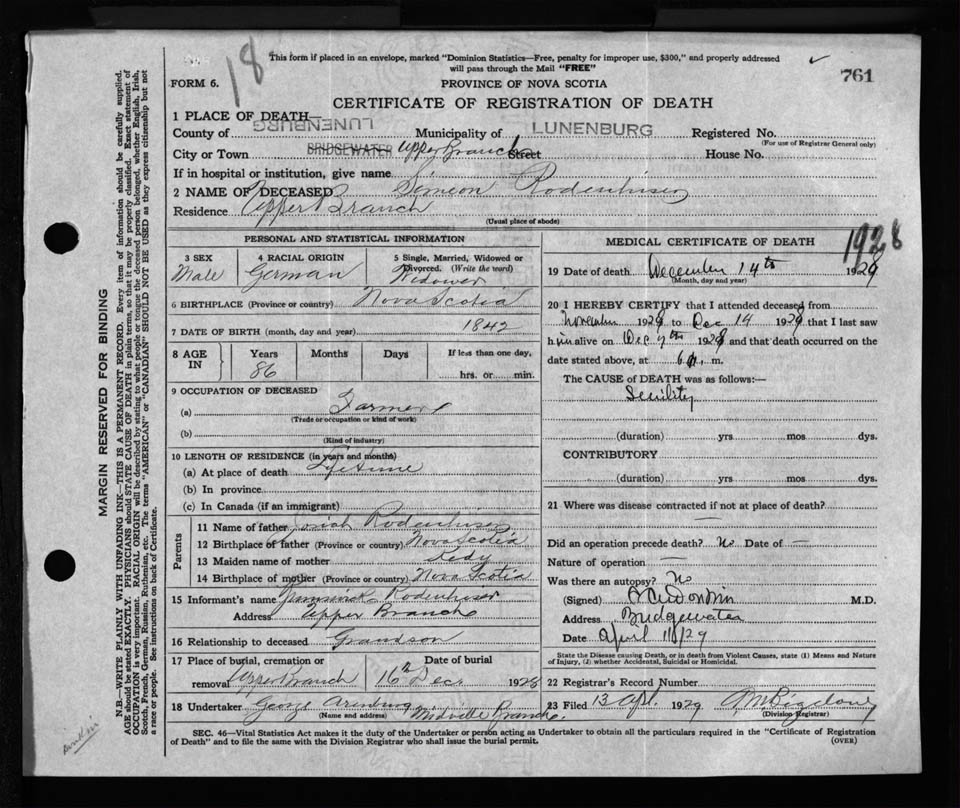 18
This form if placed in an envelope, marked "Dominion Statistics—Free, penalty for improper use, $300," and properly addressed
will pass through the Mail "FREE"
761
FORM 6.
PROVINCE OF NOVA SCOTIA
CERTIFICATE OF REGISTRATION OF DEATH
1 PLACE OF DEATH—
County of LUNENBURG Municipality of LUNENBURG Registered No.
(For use of Registrar General only)
City or Town BRIDGEWATER Upper Branch Street House No.
If in hospital or institution, give name
2 NAME OF DECEASED Simeon Rodenhiser
Residence Upper Branch
(Usual place of abode)
PERSONAL AND STATISTICAL INFORMATION
3 SEX Male
4 RACIAL ORIGIN German
5 Single, Married, Widowed or
Divorced. (Write the word)
Widower
6 BIRTHPLACE (Province or country) Nova Scotia
7 DATE OF BIRTH (month, day and year) 1842
8 AGE IN
Years Months Days If less than one day,
86 hrs. or min.
9 OCCUPATION OF DECEASED
(a) Farmer
(Trade or occupation or kind of work)
(b)
(Kind of industry)
10 LENGTH OF RESIDENCE (in years and months)
(a) At place of death Lifetime
(b) In province
(c) In Canada (if an immigrant)
Parents
11 Name of father Rodenhiser
12 Birthplace of father (Province or country) Nova Scotia
13 Maiden name of mother
14 Birthplace of mother (Province or country) Nova Scotia
15 Informant's name Rodenhiser
Address Upper Branch
16 Relationship to deceased Grandson
17 Place of burial, cremation or
removal Upper Branch
Date of burial
16 Dec 1928
18 Undertaker George
(Name and address)
Branch.
MEDICAL CERTIFICATE OF DEATH
1928
19 Date of death December 14th 1928
(Month, day and year)
20 I HEREBY CERTIFY that I attended deceased from
November 1928 to Dec 14 1928 that I last saw
him alive on Dec 7th 1928 and that death occurred on the
date stated above, at 6 m.
The CAUSE of DEATH was as follows:—
Senility
(duration) yrs mos dys.
CONTRIBUTORY
(duration) yrs mos dys.
21 Where was disease contracted if not at place of death?
—
Did an operation precede death? No Date of —
Nature of operation —
Was there an autopsy? No
(Signed) M.D.
Address Bridgewater
Date April 11/29
State the Disease causing Death, or in death from Violent Causes, state (1) Means and Nature
of Injury, (2) whether Accidental, Suicidal or Homicidal.
22 Registrar's Record Number
23 Filed 13 Apl. 1929
(Division Registrar)
SEC. 46—Vital Statistics Act makes it the duty of the Undertaker or person acting as Undertaker to obtain all the particulars required in the "Certificate of Registration
of Death" and to file the same with the Division Registrar who shall issue the burial permit.
(OVER)
MARGIN RESERVED FOR BINDING
N.B.—WRITE PLAINLY WITH UNFADING INK—THIS IS A PERMANENT RECORD. Every item of information should be carefully supplied.
AGE should be stated EXACTLY. PHYSICIANS should STATE CAUSE OF DEATH in plain terms, so that it may be properly classified. Exact statement of
OCCUPATION is very important. RACIAL ORIGIN will be described by stating to what people or tongue the deceased person belonged, whether English, Irish,
Scotch, French, German, Russian, Ruthenian, etc. The terms "AMERICAN" or "CANADIAN" SHOULD NOT BE USED as they express citizenship but not
a race or people. See instructions on back of Certificate.